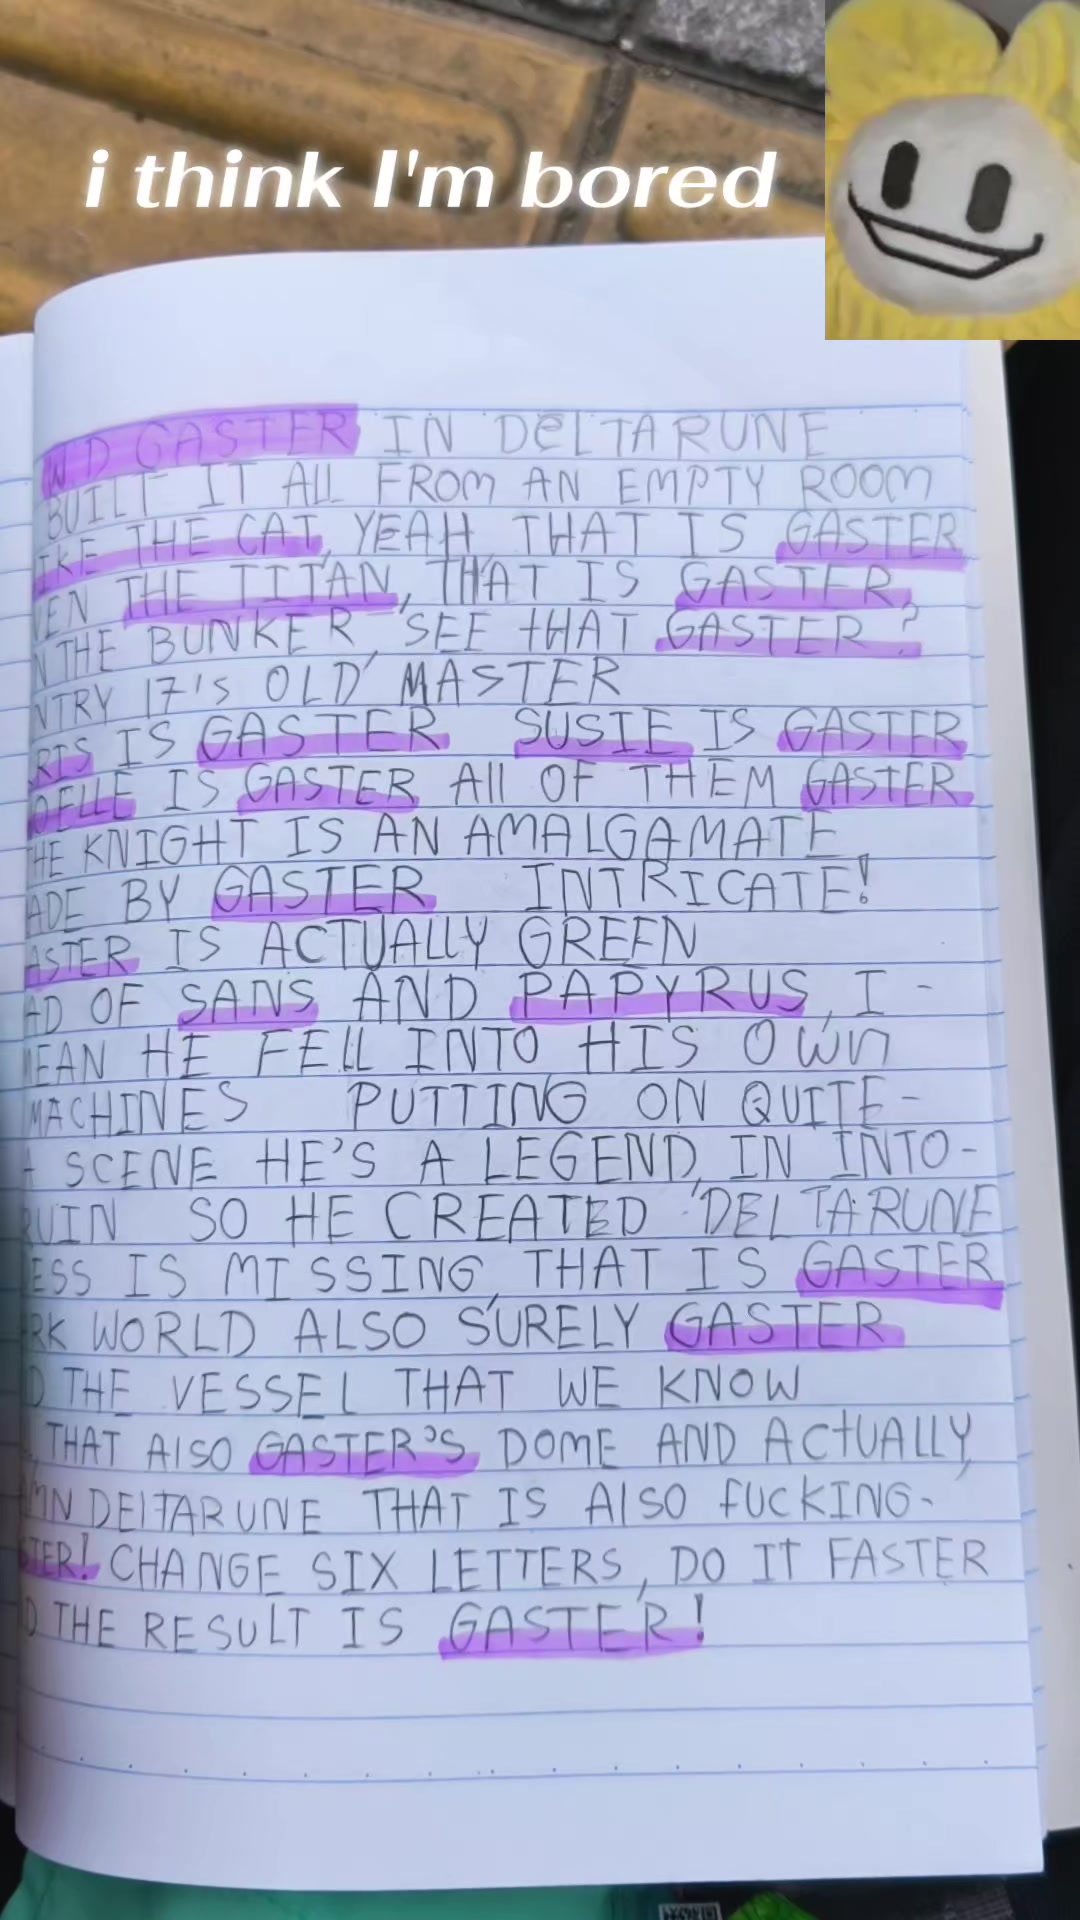 i think I'm bored
ND GASTER IN DELTARUNE
BUILT IT ALL FROM AN EMPTY ROOM
IKE THE CAT, YEAH THAT IS GASTER
VEN THE TITAN, THAT IS GASTER,
N THE BUNKER, SEE tHAT GASTER?
NTRY 17's OLD MASTER
RIS IS GASTER SUSIE IS GASTER
OELLE IS GASTER All OF THEM GASTER
HE KNIGHT IS AN AMALGAMATE
ADE BY GASTER INTRICATE!
ASTER IS ACTUALLY GREEN
AD OF SANS AND PAPYRUS, I -
MEAN HE FELL INTO HIS OWN
MACHINES PUTTING ON QUITE-
A SCENE HE'S A LEGEND, IN INTO-
RUIN SO HE CREATED DELTARUNE
ESS IS MISSING, THAT IS GASTER
RK WORLD ALSO SURELY GASTER
D THE VESSEL THAT WE KNOW
THAT AlSO GASTER'S DOME AND ACtUALLY,
MN DElTARUNE THAT IS AlSO fUCKING-
TER! CHANGE SIX LETTERS, DO IT FASTER
D THE RESULT IS GASTER!